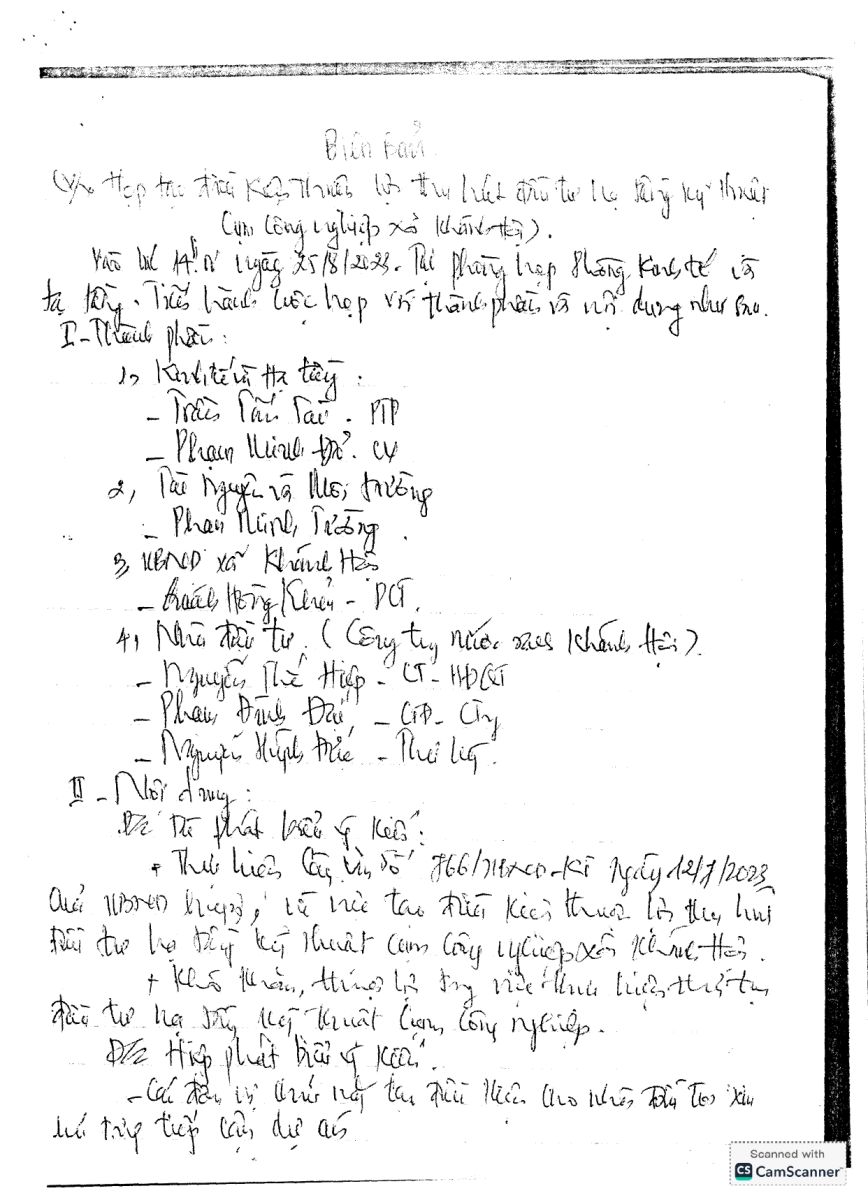 Biên bản
(V/v Họp tạo điều kiện thuận lợi thu hút đầu tư hạ tầng kỹ thuật
Cụm Công nghiệp xã Khánh Hải).
Vào lúc 14h ngày 25/8/2023. Tại phòng họp Phòng Kinh tế và
hạ tầng. Tiến hành cuộc họp với thành phần và nội dung như sau.
I - Thành phần:
1, Kinh tế và Hạ tầng:
- Trần Tấn Tài. PTP
- Phạm Minh CV
2, Tài Nguyên và Môi trường
- Phan Minh Trường.
3, UBND xã Khánh Hải
- Hồng - PCT.
4, Nhà đầu tư. (Công ty nước Khánh Hải).
- Nguyễn Thế Hiệp - CT - HĐQT
- Phan Đình - GĐ - Cty
- Nguyễn Huỳnh - Thư ký.
II - Nội dung:
Đ/c Tài phát biểu ý kiến:
+ Thực hiện Công văn số 766/UBND-KT Ngày 12/7/2023
Của UBND huyện, về việc tạo điều kiện thuận lợi thu hút
đầu tư hạ tầng kỹ thuật cụm công nghiệp xã Khánh Hải.
+ Khó khăn, thuận lợi trong việc thực hiện thủ tục
đầu tư hạ tầng kỹ thuật Cụm Công nghiệp.
Đ/c Hiệp phát biểu ý kiến.
- Các đơn vị tạo điều kiện cho nhà đầu tư
tiếp cận dự án
Scanned with
CS CamScanner